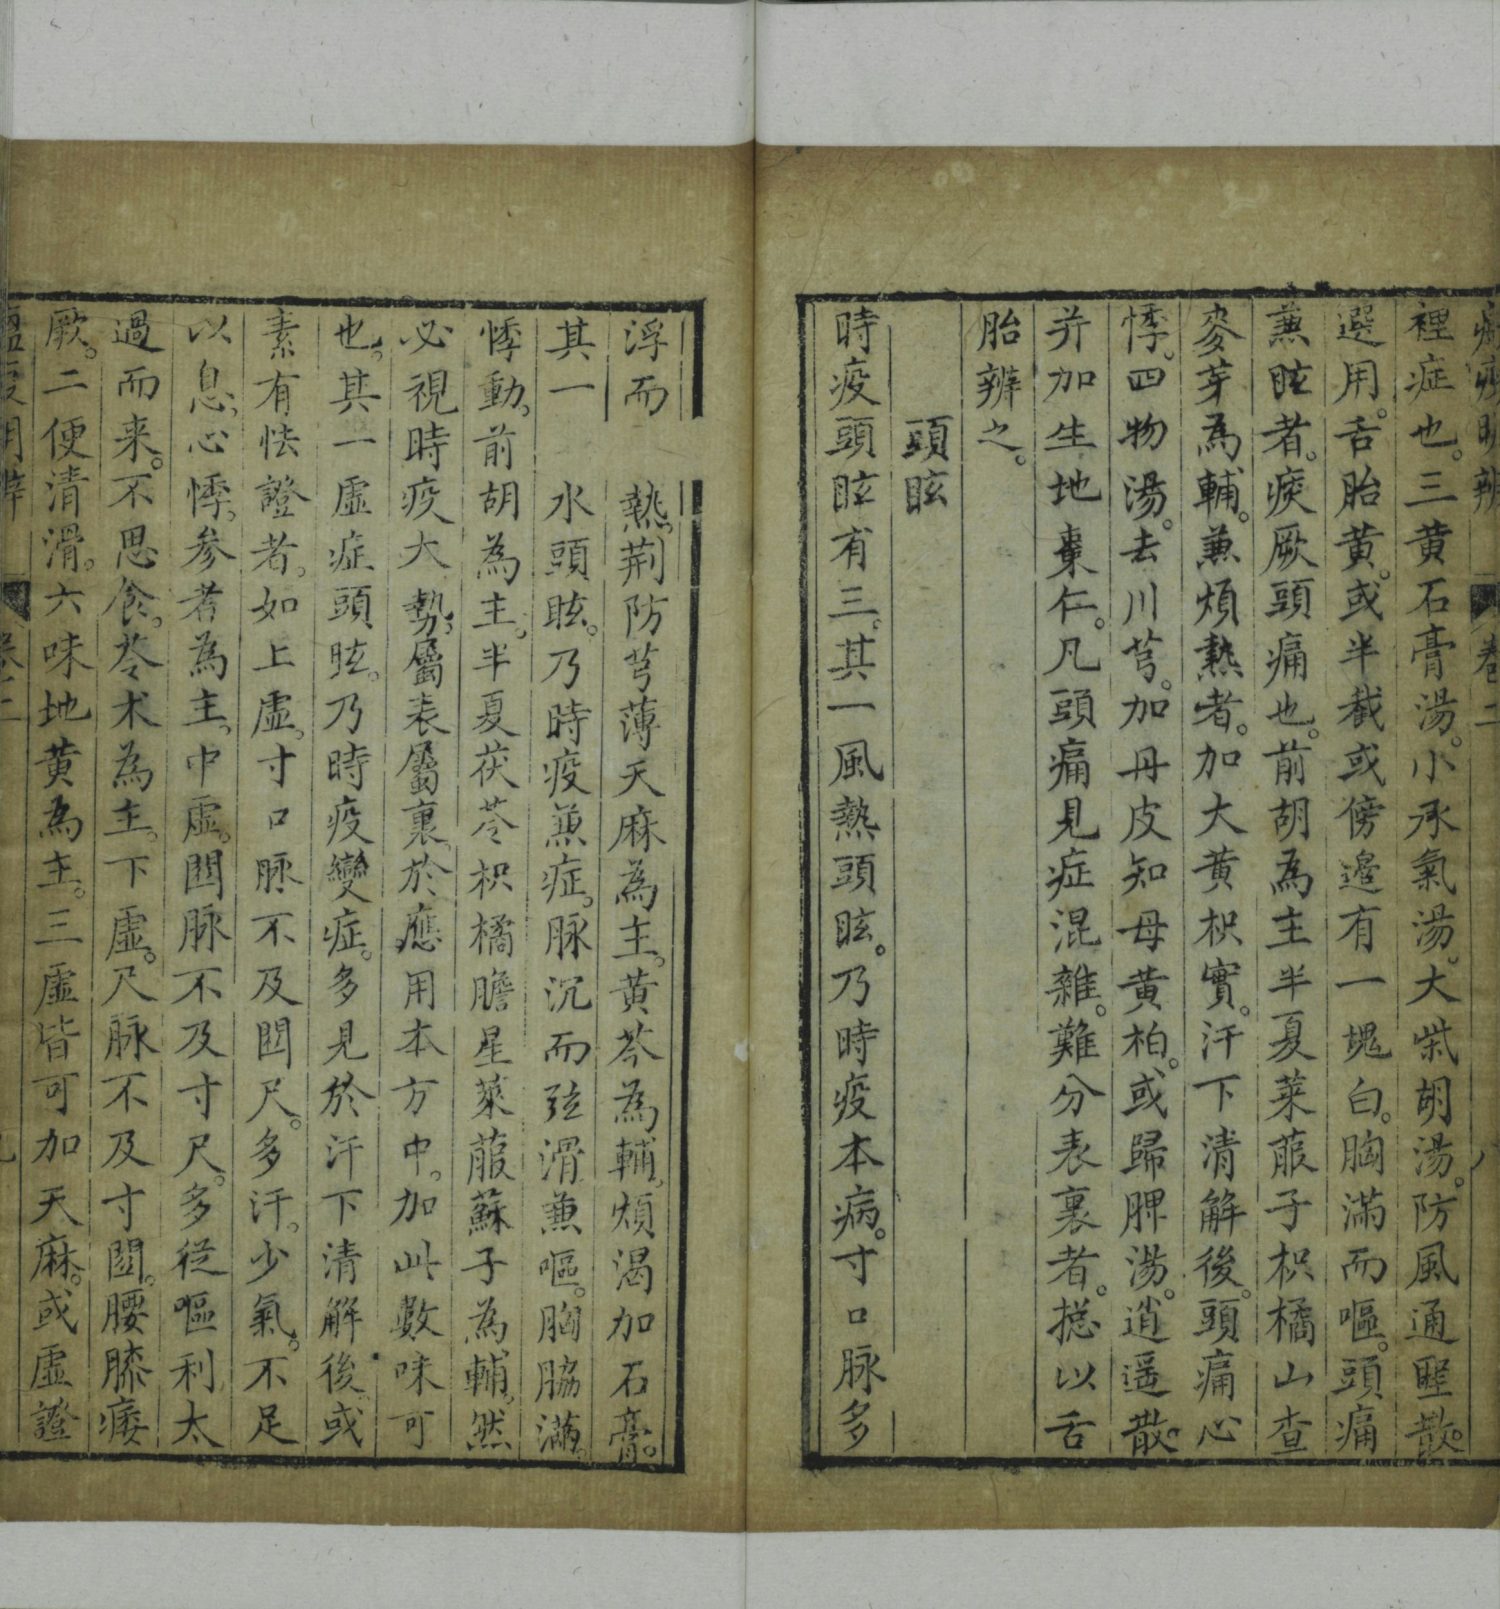 裡症也。三黄石膏湯。小承氣湯。大柴胡湯。防風通聖散。
選用。舌胎黄。或半截或傍邉有一塊白。胸滿而嘔。頭痛
兼眩者。痰厥頭痛也。前胡為主半夏莱菔子枳橘山查
麥芽為輔。兼煩熱者。加大黄枳實。汗下清解後。頭痛心
悸。四物湯。去川芎。加丹皮知母黄柏。或歸脾湯。逍遥散。
并加生地棗仁。凡頭痛見症混雜。難分表裏者。捴以舌
胎辨之。
頭眩
時疫頭眩有三。其一風熱頭眩。乃時疫本病。寸口脉多
浮而 熱。荆防芎薄天麻為主。黄芩為輔。煩渴加石膏。
其一 水頭眩。乃時疫兼症。脉沉而弦滑兼嘔。胸脇滿。
悸動。前胡為主。半夏茯苓枳橘膽星萊菔蘇子為輔。然
必視時疫大勢。屬表屬裏。於應用本方中。加此數味可
也。其一虛症頭眩。乃時疫變症。多見於汗下清解後。或
素有怯證者。如上虛。寸口脉不及関尺。多汗。少氣。不足
以息。心悸。参芪為主。中虛。関脉不及寸尺。多從嘔利太
過而来。不思食。苓术為主。下虛。尺脉不及寸関。腰膝痿
厥。二便清滑。六味地黄為主。三虛皆可加天麻。或虛證